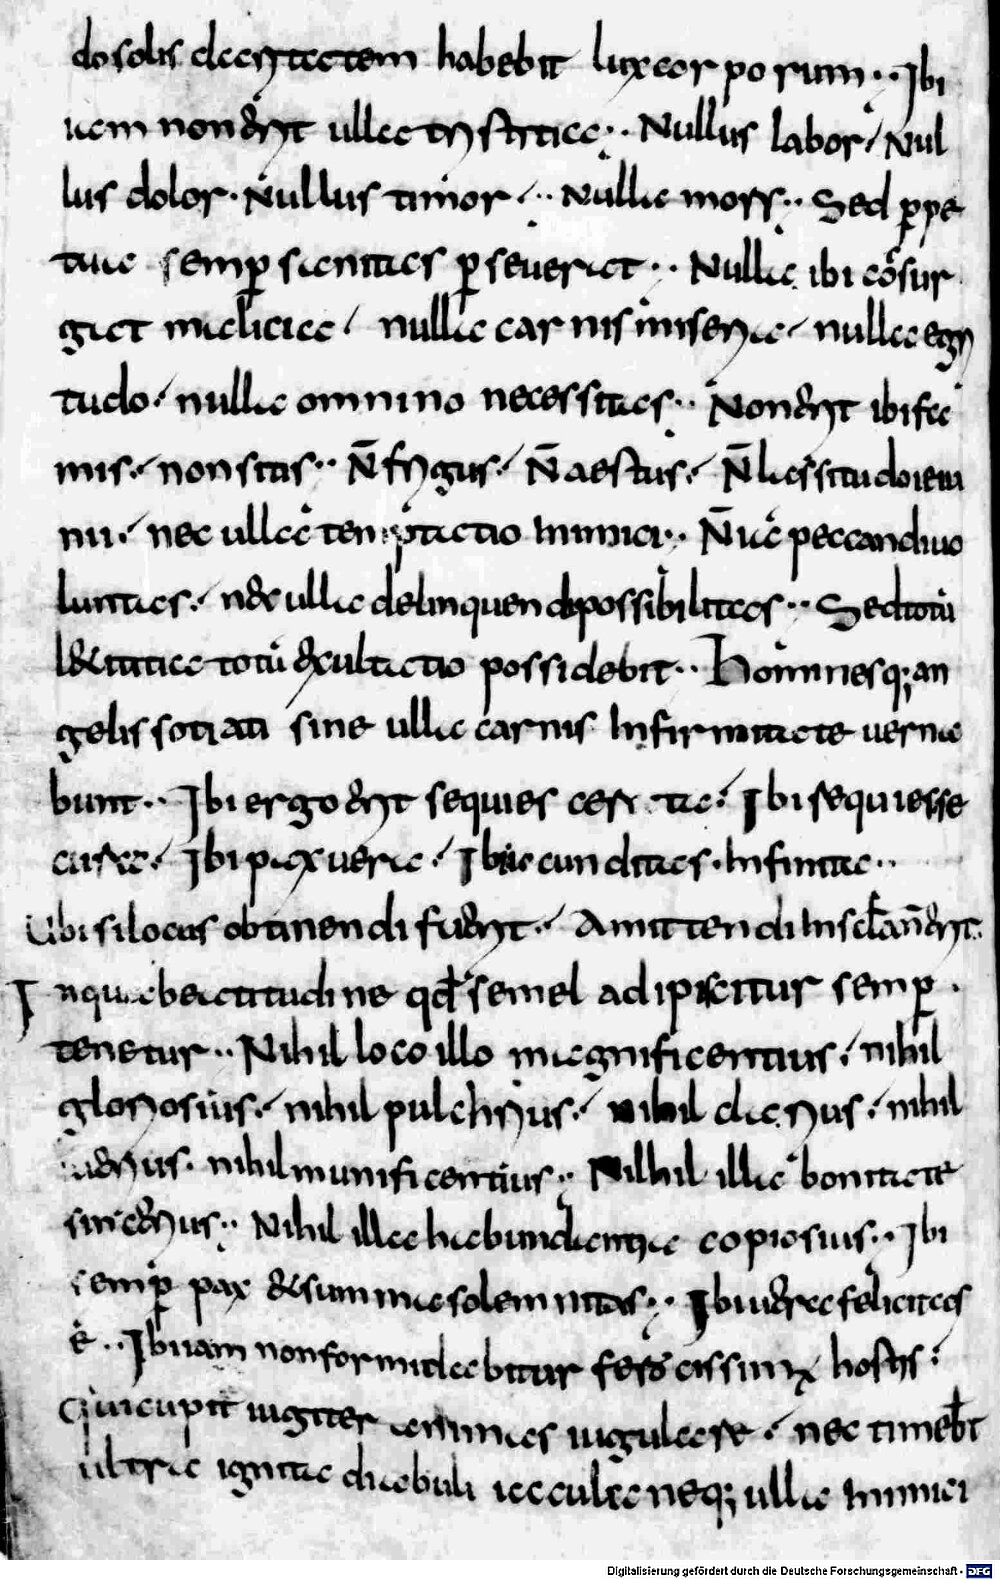 do solis claritatem habebit lux corporum·· Ibi
iam non erit ulla tristitia·· Nullus labor· Nul
lus dolor· Nullus timor··· Nulla mors·· Sed ꝑpe
tua semꝑ sanitas ꝑseverat·· Nulla ibi cōsur
giet malicia· nulla carnis miseria· nulla egri
tudo· nulla omnino necessitas·· Non erit ibi fa
mis· non sitis·· N̄ frigus· N̄ aestus· N̄ lassitudo ieiu
nii· nec ulla temptatio inimici·· N̄ iā peccandi uo
luntas· nec ulla delinquendi possibilitas·· Sed totū
laetitia totū exultatio possidebit·· Hominesq; an
gelis sotiati sine ulla carnis infirmitate uerna
bunt·· Ibi ergo erit requies certa· Ibi requies se
cura· Ibi pax uera· Ibi iacunditas· Infinita··
Ubi si locus obtinendi fuerit· Amittendi in scł̄a n̄ erit·
In qua beatitudine qđ semel adipiscitur semꝑ·
tenetur·· Nihil loco illo magnificentius· nihil
gloriosius· nihil pulchrius· nihil clarius· nihil
uerius· nihil munificentius·· Nilhil illa bonitate
sincerius·· Nihil illa habundantia copiosius·· Ibi
semꝑ pax & summa solemnitas·· Ibi uera felicitas
ē·· Ibi iam non formidabitur hostis·
Qui cupit iugiter animas iugulare· nec timebit
ultra ignita diabuli iacula neq; ulla inimici
Digitalisierung gefördert durch die Deutsche Forschungsgemeinschaft - DFG